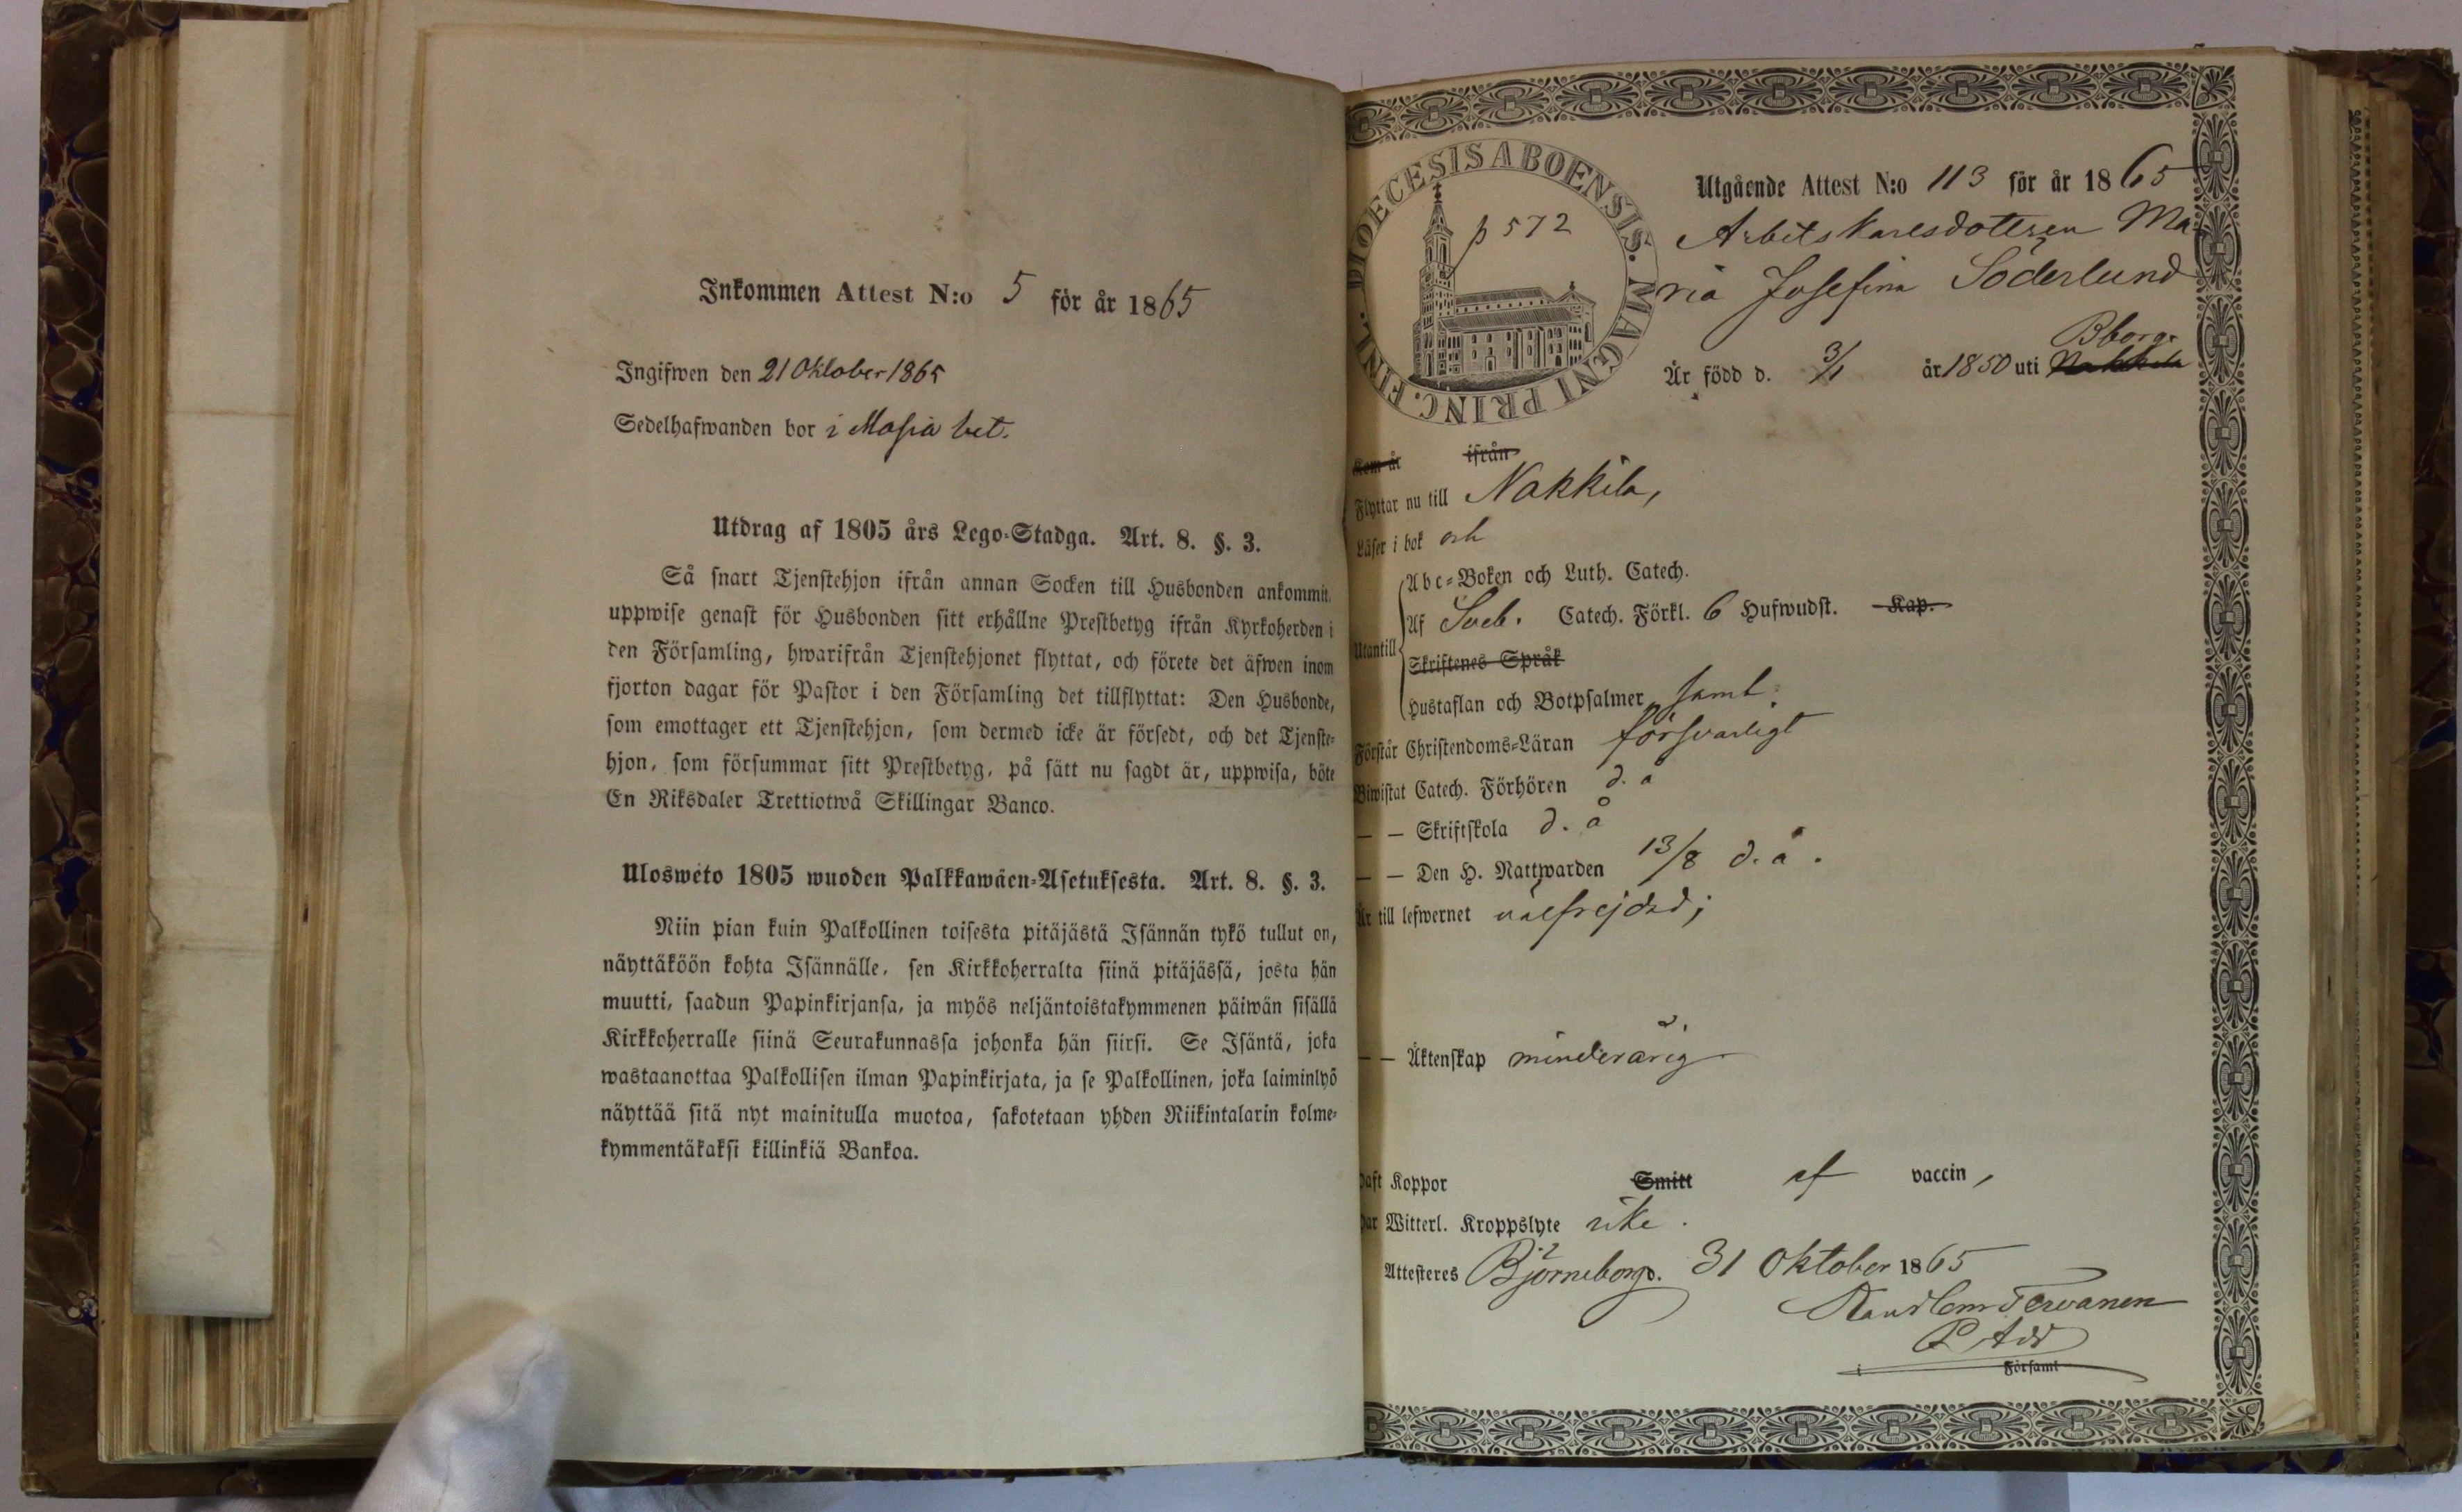 Inkommen Attest N:o 5 för år 1865
Ingifwen den 21 Oktober 1865
Sedelhafwanden bor i Masia bet.
Utdrag af 1805 års Lego-Stadga. Art. 8. §. 3.
Så snart Tjenstehjon ifrån annan Socken till Husbonden ankommit,
uppwise genast för Husbonden sitt erhållne Prestbetyg ifrån Kyrkoherden i
den Församling, hwarifrån Tjenstehjonet flyttat, och förete det äfwen inom
fjorton dagar för Pastor i den Församling det tillflyttat: Den Husbonde,
som emottager ett Tjenstehjon, som dermed icke är försedt, och det Tjenste-
hjon, som försummar sitt Prestbetyg, på sätt nu sagdt är, uppwisa, böte
En Riksdaler Trettiotwå Skillingar Banco.
Uloswéto 1805 wuoden Palkkawäen-Asetuksesta. Art. 8. §. 3.
Niin pian kuin Palkollinen toisesta pitäjästä Isännän tykö tullut on,
näyttäköön kohta Isännälle, sen Kirkkoherralta siinä pitäjässä, josta hän
muutti, saadun Papinkirjansa, ja myös neljäntoistakymmenen päiwän sisällä
Kirkkoherralle siinä Seurakunnassa johonka hän siirsi. Se Isäntä, joka
wastaanottaa Palkollisen ilman Papinkirjata, ja se Palkollinen, joka laiminlyö
näyttää sitä nyt mainitulla muotoa, sakotetaan yhden Riikintalarin kolme-
kymmentäkaksi killinkiä Bankoa.
DIOECESIS ABOENSIS. MAGNI PRINC. FINL.
p 572
Utgående Attest N:o 113 för år 1865
Arbetskarlsdottren Ma-
ria Josefina Söderlund
Bborg.
Är född d. 3/1 år 1850 uti Nakkila
Kom år ifrån
Flyttar nu till Nakkila,
Läser i bok och
Utantill
Abc-Boken och Luth. Catech.
Af Sveb. Catech. Förkl. 6 Hufwudst. Kap.
Skriftenes Språk
Hustaflan och Botpsalmer samt
Förstår Christendoms-Läran försvarligt
Biwistat Catech. Förhören d. å
— — Skriftskola d. å
— — Den H. Nattwarden 13/8 d. å.
Är till lefwernet välfrejdad;
— — Äktenskap minderårig
Haft Koppor Smitt af vaccin,
Har Witterl. Kroppslyte icke.
Attesteres Björneborg d. 31 Oktober 1865
Tervanen
i Församl